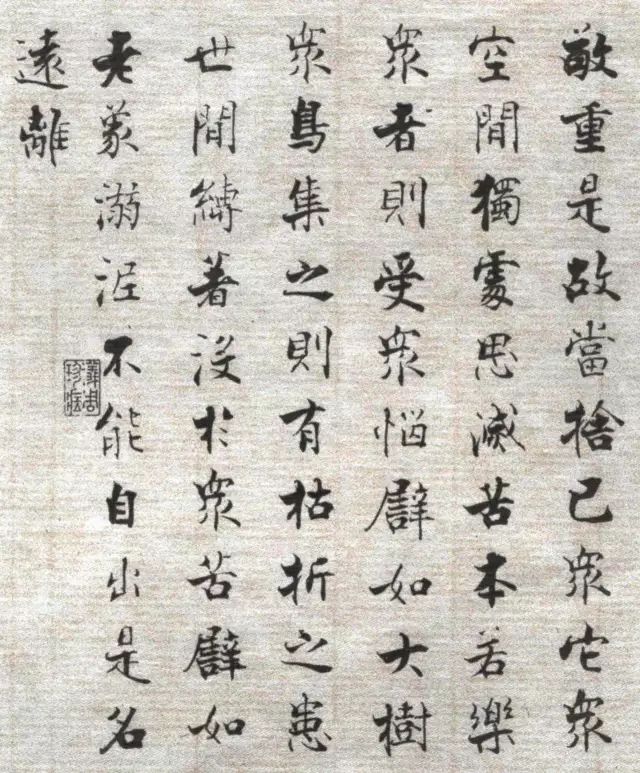 敬重是故當捨己衆它衆
空閒獨處思滅苦本若樂
衆者則受衆惱譬如大樹
衆鳥集之則有枯折之患
世間縛著沒於衆苦譬如
老象溺泥不能自出是名
遠離